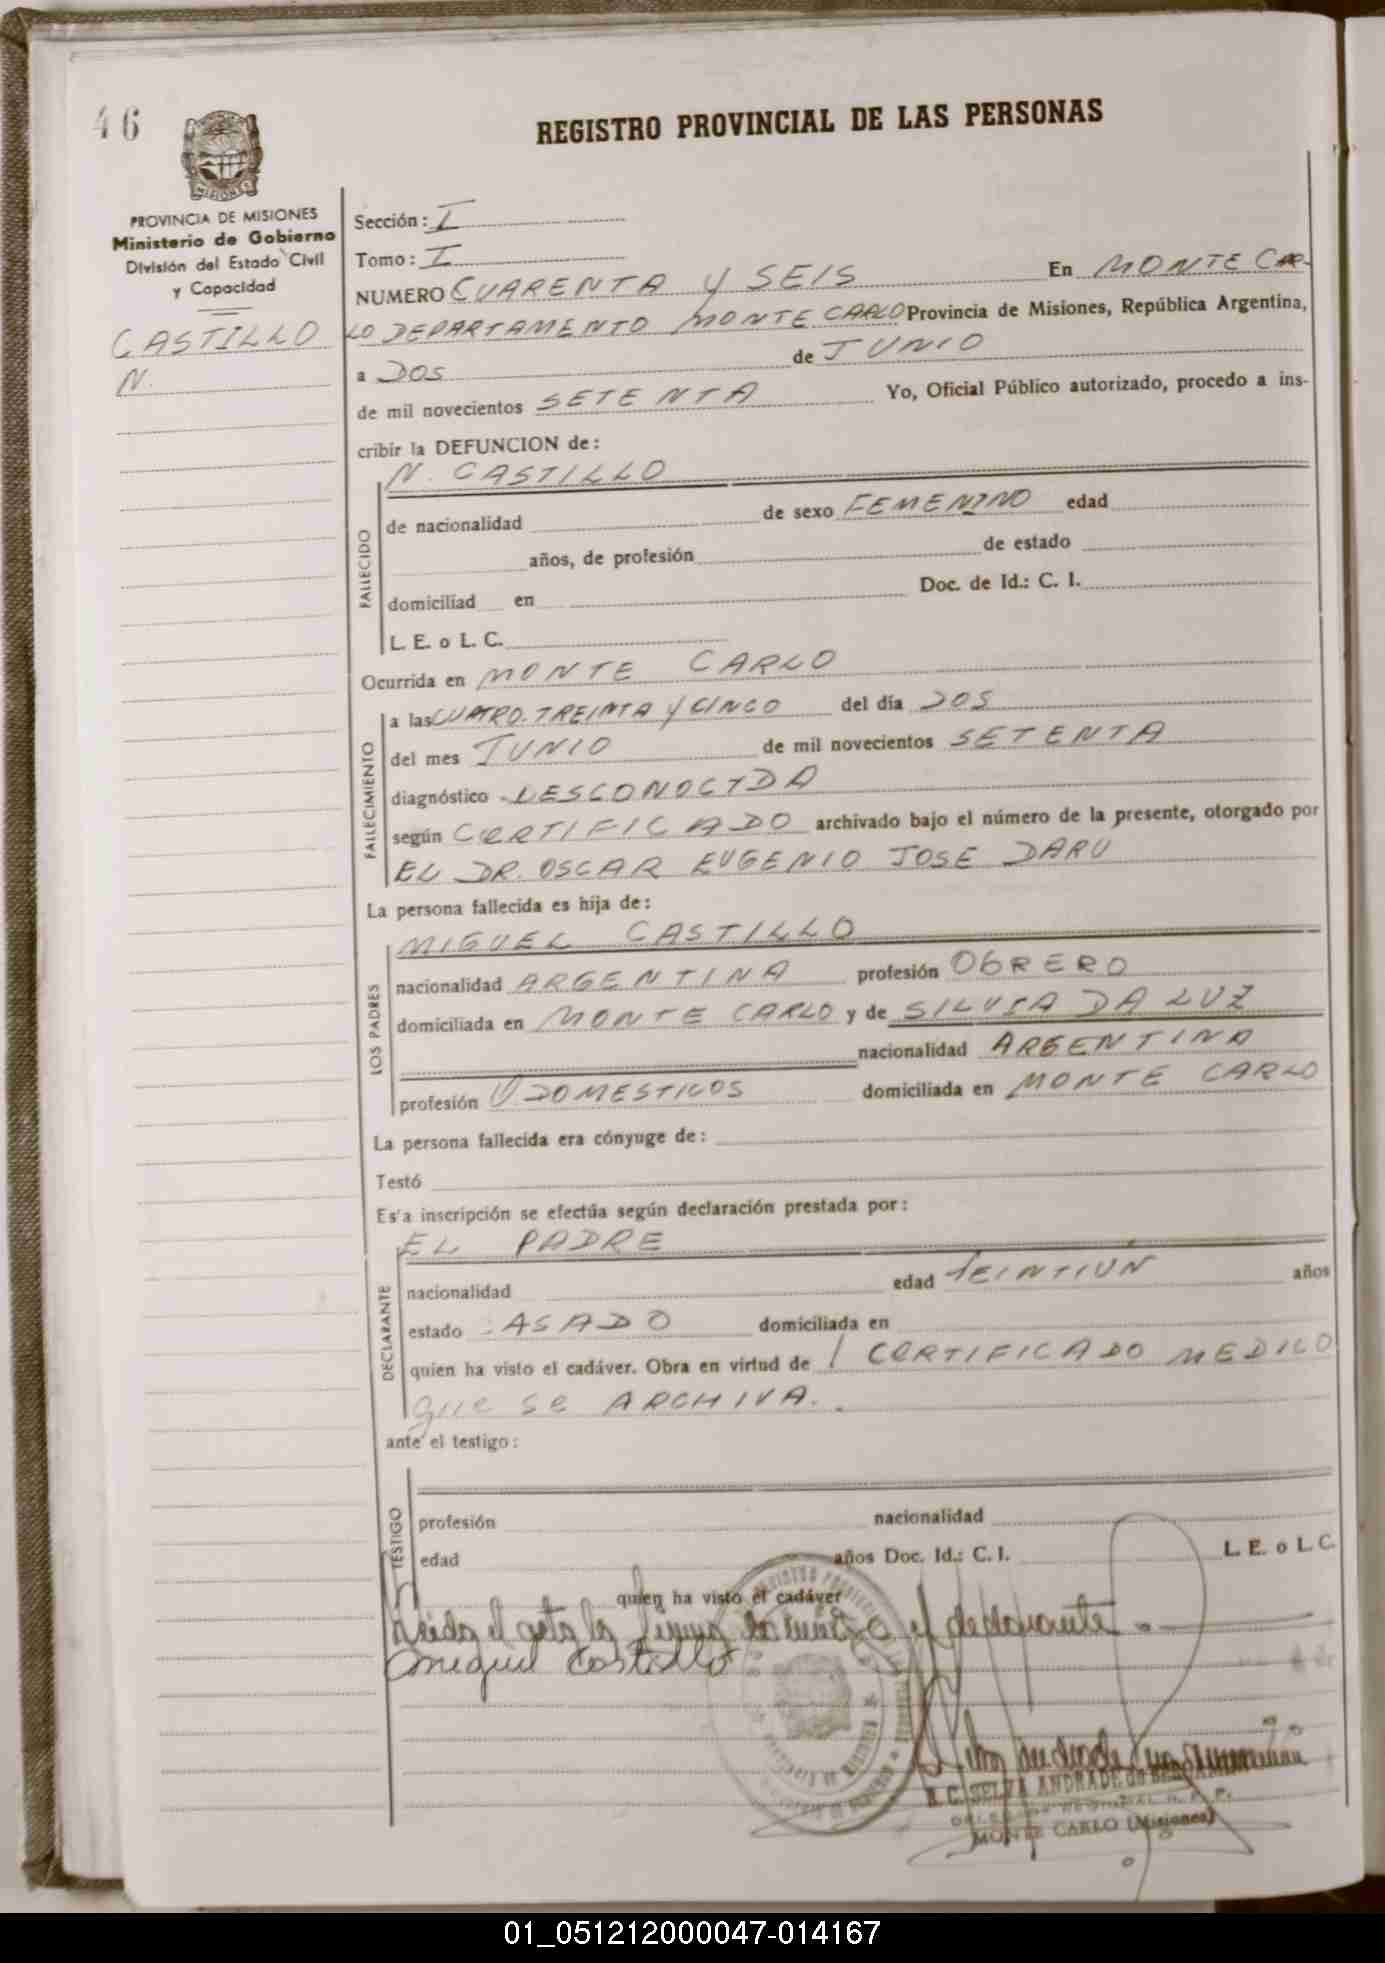 46
REGISTRO PROVINCIAL DE LAS PERSONAS
MISIONES
PROVINCIA DE MISIONES
Ministerio de Gobierno
División del Estado Civil
y Capacidad
CASTILLO
N.
Sección: I
Tomo: I
NUMERO CUARENTA Y SEIS En MONTE CAR-
LO DEPARTAMENTO MONTE CARLO Provincia de Misiones, República Argentina,
a DOS de JUNIO
de mil novecientos SETENTA Yo, Oficial Público autorizado, procedo a ins-
cribir la DEFUNCION de:
N. CASTILLO
FALLECIDO
de nacionalidad de sexo FEMENINO edad
años, de profesión de estado
domiciliad en Doc. de Id.: C. I.
L. E. o L. C.
Ocurrida en MONTE CARLO
FALLECIMIENTO
a las CUATRO. TREINTA Y CINCO del día DOS
del mes JUNIO de mil novecientos SETENTA
diagnóstico DESCONOCIDA
según CERTIFICADO archivado bajo el número de la presente, otorgado por
EL DR. OSCAR EUGENIO JOSE DARU
La persona fallecida es hija de:
MIGUEL CASTILLO
LOS PADRES
nacionalidad ARGENTINA profesión OBRERO
domiciliada en MONTE CARLO y de SILVIA DA LUZ
nacionalidad ARGENTINA
profesión DOMESTICOS domiciliada en MONTE CARLO
La persona fallecida era cónyuge de:
Testó
Es'a inscripción se efectúa según declaración prestada por:
EL PADRE
DECLARANTE
nacionalidad edad VEINTIUN años
estado CASADO domiciliada en
quien ha visto el cadáver. Obra en virtud de 1 CERTIFICADO MEDICO
que se ARCHIVA.
ante el testigo:
TESTIGO
profesión nacionalidad
edad años Doc. Id.: C. I. L. E. o L. C.
quien ha visto el cadáver
Leida el acta la firma el declarante
Miguel Castillo
SELVA ANDRADE de
MONTE CARLO (Misiones)
01_051212000047-014167